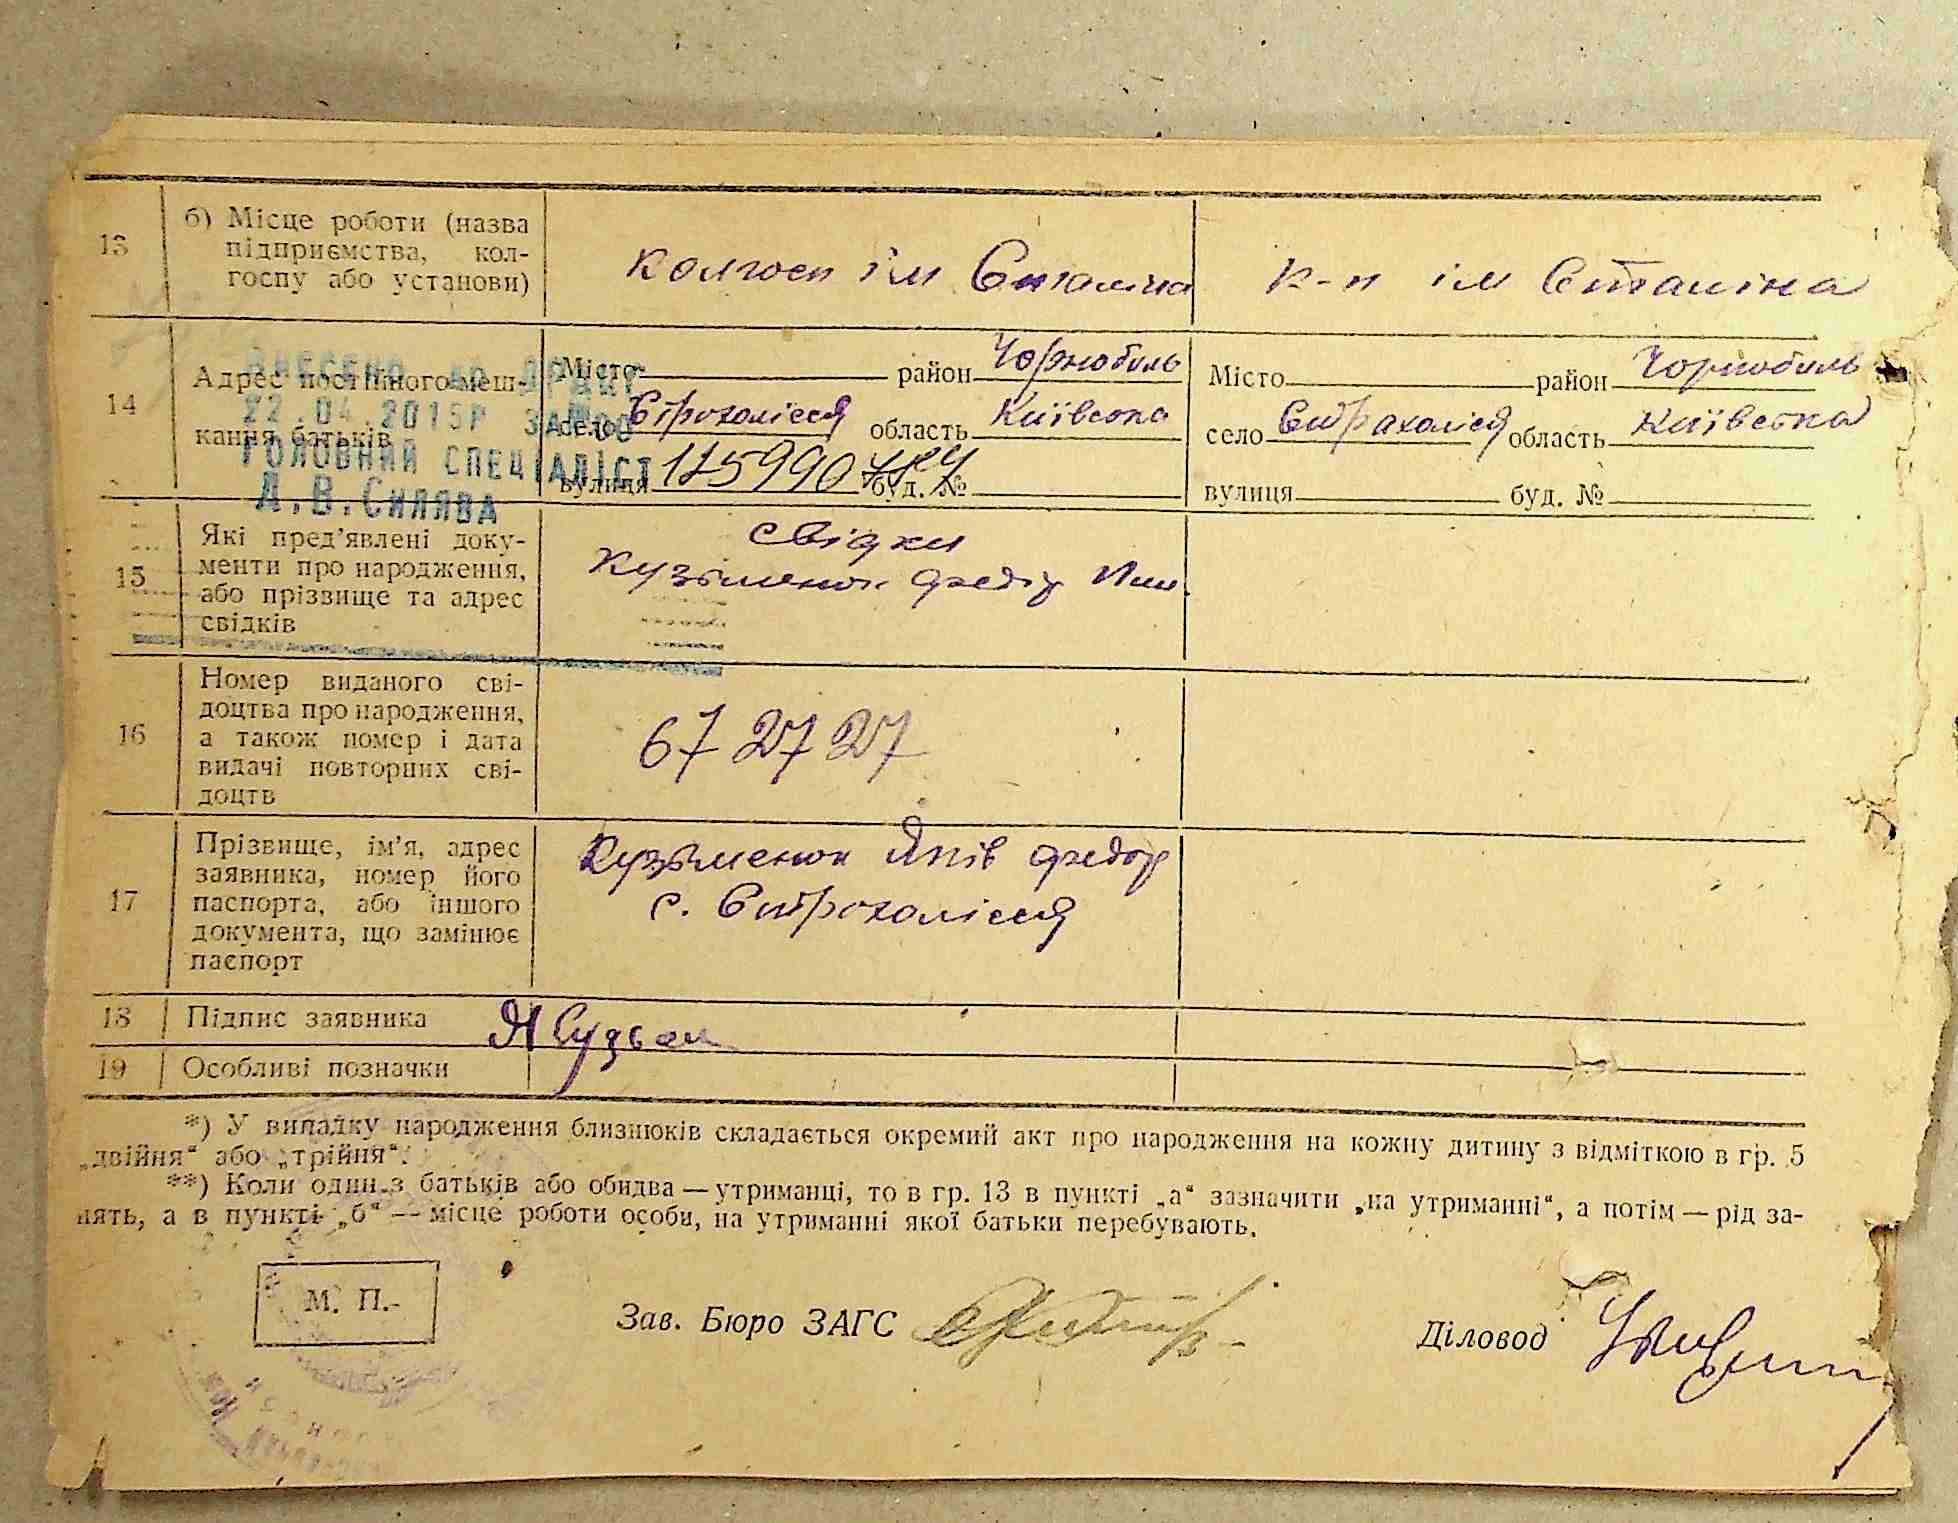 13
б) Місце роботи (назва
підприємства, кол-
госпу або установи)
колгосп ім Сталіна
к-п ім Сталіна
14
Адрес постійного меш-
кання батьків
Місто район Чорнобиль
село Страхолісся область Київська
вулиця 125990 буд. №
Місто район Чорнобиль
село Страхоліся область Київська
вулиця буд. №
ВНЕСЕНО ДО ДРАЦГ
22.04.2015р ЗА №00
ГОЛОВНИЙ СПЕЦІАЛІСТ
Д.В.Силява
15
Які пред'явлені доку-
менти про народження,
або прізвище та адрес
свідків
свідки
Кузьменок федір
16
Номер виданого сві-
доцтва про народження,
а також номер і дата
видачі повторних сві-
доцтв
67 27 27
17
Прізвище, ім'я, адрес
заявника, номер його
паспорта, або іншого
документа, що замінює
паспорт
Кузьменок Яків федор
с. Страхолісся
18
Підпис заявника
19
Особливі позначки
*) У випадку народження близнюків складається окремий акт про народження на кожну дитину з відміткою в гр. 5
„двійня“ або „трійня“.
**) Коли один з батьків або обидва — утриманці, то в гр. 13 в пункті „а“ зазначити „на утриманні“, а потім — рід за-
нять, а в пункті „б“ — місце роботи особи, на утриманні якої батьки перебувають.
М. П.
Зав. Бюро ЗАГС
Діловод